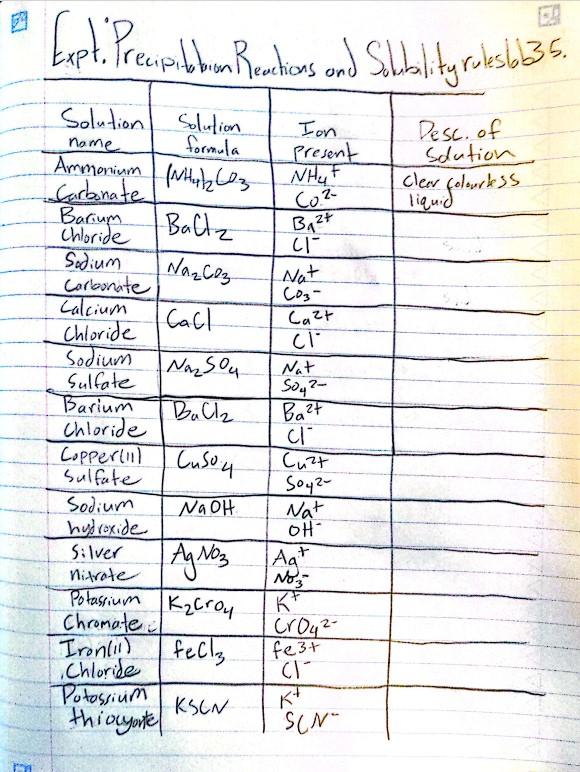 Expt: Precipitation Reactions and Solubility rules lab 35.
Solution name Solution formula Ion present Desc. of Solution
Ammonium Carbonate (NH4)2CO3 NH4+ Co2- Clear colourless liquid
Barium Chloride BaCl2 Ba2+ Cl-
Sodium Carbonate Na2CO3 Na+ CO3-
Calcium Chloride CaCl Ca2+ Cl-
Sodium Sulfate Na2SO4 Na+ SO42-
Barium Chloride BaCl2 Ba2+ Cl-
Copper(II) Sulfate CuSO4 Cu2+ SO42-
Sodium hydroxide NaOH Na+ OH-
Silver nitrate AgNO3 Ag+ NO3-
Potassium Chromate K2CrO4 K+ CrO42-
Iron(II) Chloride feCl3 fe3+ Cl-
Potassium thiocyante KSCN K+ SCN-